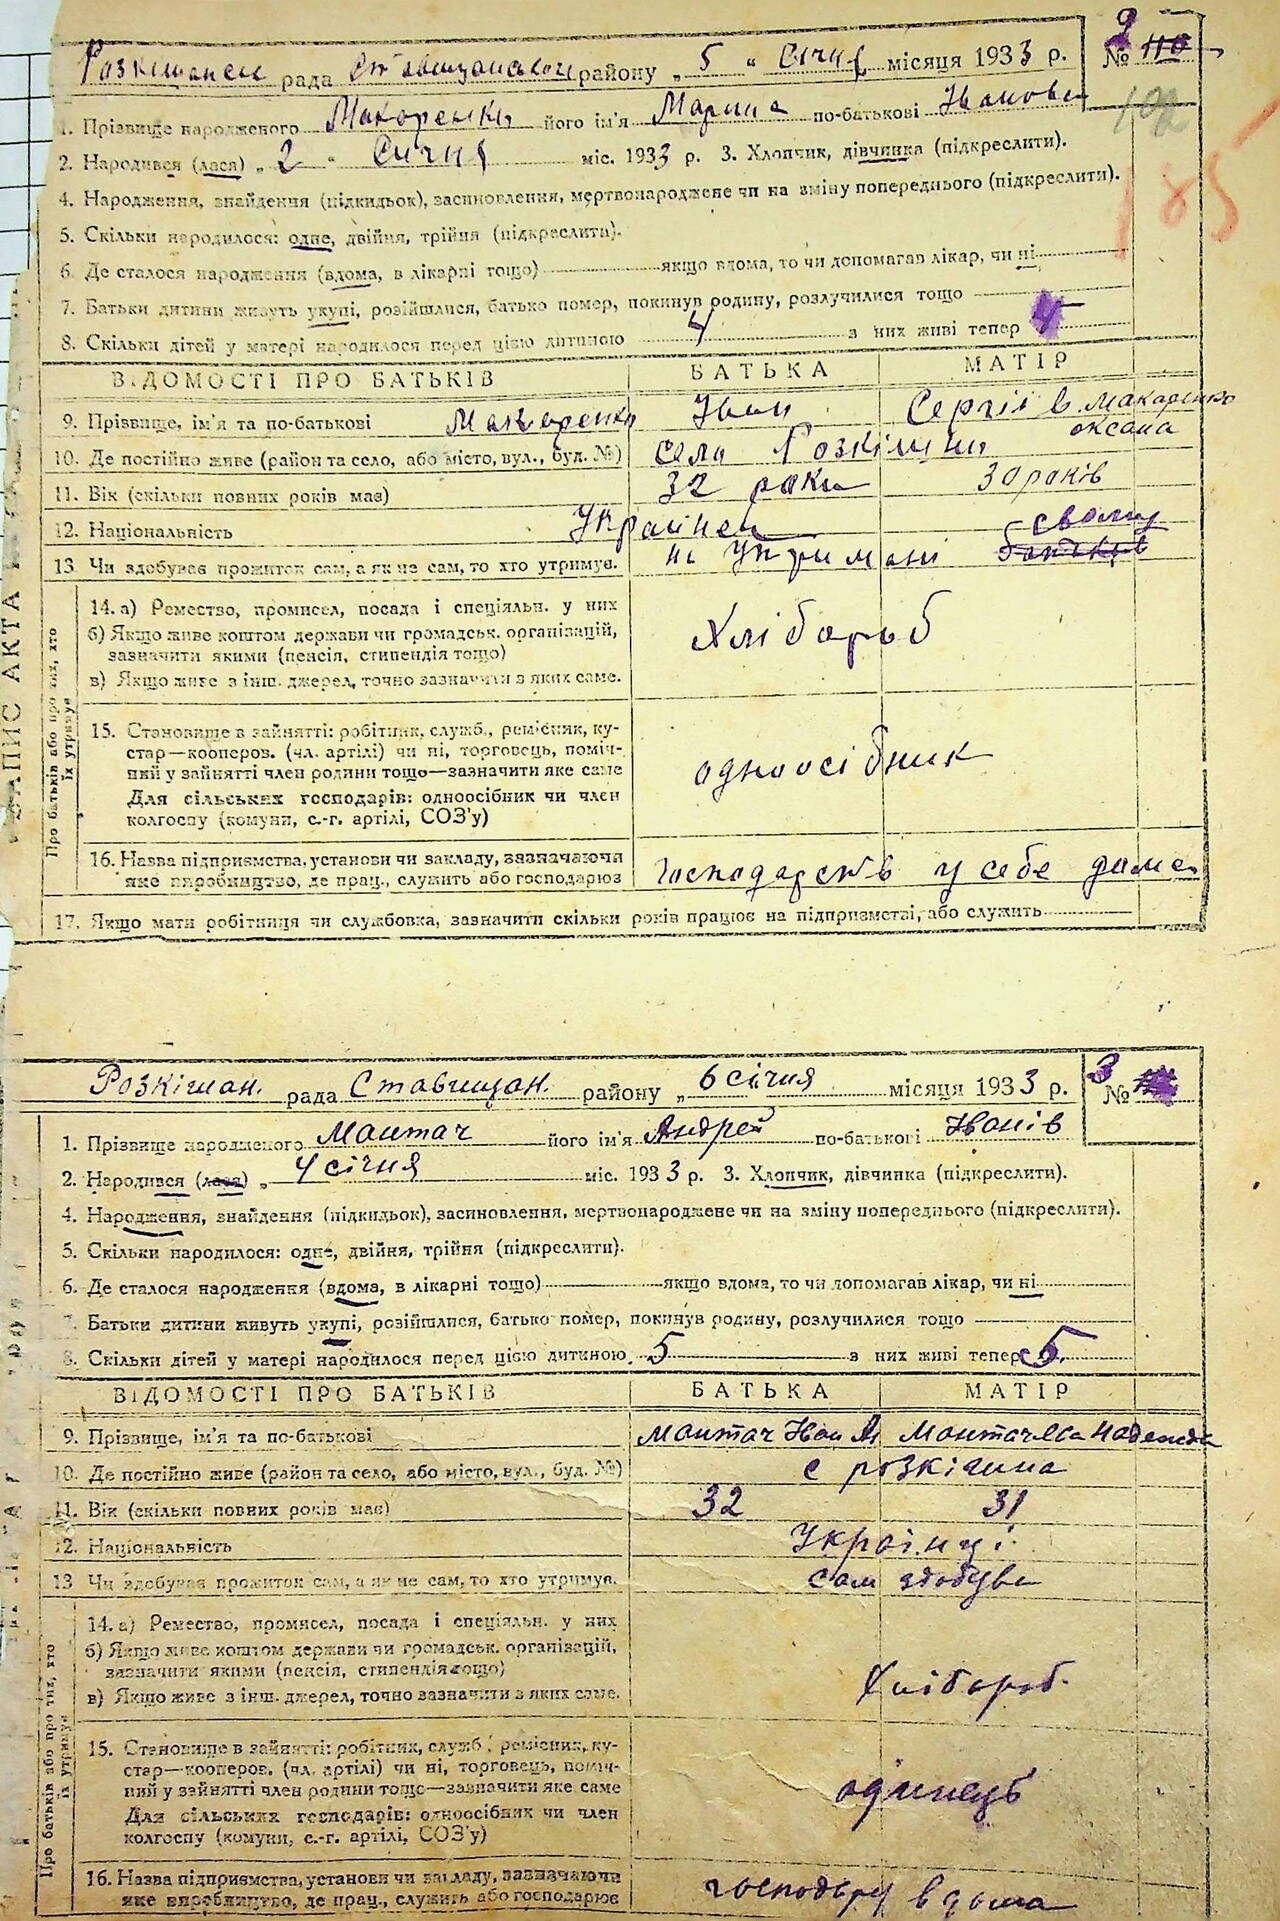 Розкішанск рада Ставищанского району „ 5 “ Січня місяця 1933 р. № 2 110
102
1. Прізвище народженого Макаренко його ім'я Марина по-батькові Іванова
185
2. Народився (лася) „ 2 “ Січня міс. 1933 р. 3. Хлопчик, дівчинка (підкреслити).
4. Народження, знайдення (підкидьок), засиновлення, мертвонароджене чи на зміну попереднього (підкреслити).
5. Скільки народилося: одне, двійня, трійня (підкреслити).
6. Де сталося народження (вдома, в лікарні тощо) якщо вдома, то чи допомагав лікар, чи ні
7. Батьки дитини живуть укупі, розійшлися, батько помер, покинув родину, розлучилися тощо
8. Скільки дітей у матері народилося перед цією дитиною 4 з них живі тепер 4
ВІДОМОСТІ ПРО БАТЬКІВ БАТЬКА МАТІР
9. Прізвище, ім'я та по-батькові Макаренко Іван Сергій в. Макаренко Оксана
10. Де постійно живе (район та село, або місто, вул., буд. №) село Розкішни
11. Вік (скільки повних років має) 32 роки 30 років
12. Національність Українец
13. Чи здобуває прожиток сам, а як не сам, то хто утримує. на утримані свому батьків
Про батьків або про тих, хто їх утримує
14. а) Ремество, промисел, посада і спеціяльн. у них
б) Якщо живе коштом держави чи громадськ. організацій,
зазначити якими (пенсія, стипендія тощо) Хлібороб
в) Якщо живе з інш. джерел, точно зазначити з яких саме.
15. Становище в зайнятті: робітник, служб., ремісник, ку-
стар—кооперов. (чл. артілі) чи ні, торговець, поміч-
ний у зайнятті член родини тощо—зазначити яке саме одноосібник
Для сільських господарів: одноосібник чи член
колгоспу (комуни, с.-г. артілі, СОЗ'у)
16. Назва підприємства, установи чи закладу, зазначаючи
яке виробництво, де прац., служить або господарює у себе дома
17. Якщо мати робітниця чи службовка, зазначити скільки років працює на підприємстві, або служить
ЗАПИС АКТА
Розкішан. рада Ставищан. району „ 6 січня місяця 1933 р. № 3
1. Прізвище народженого Мантач його ім'я Андрей по-батькові Іванів
2. Народився (лася) „ 4 січня міс. 1933 р. 3. Хлопчик, дівчинка (підкреслити).
4. Народження, знайдення (підкидьок), засиновлення, мертвонароджене чи на зміну попереднього (підкреслити).
5. Скільки народилося: одне, двійня, трійня (підкреслити).
6. Де сталося народження (вдома, в лікарні тощо) якщо вдома, то чи допомагав лікар, чи ні
7. Батьки дитини живуть укупі, розійшлися, батько помер, покинув родину, розлучилися тощо
8. Скільки дітей у матері народилося перед цією дитиною 5 з них живі тепер 5
ВІДОМОСТІ ПРО БАТЬКІВ БАТЬКА МАТІР
9. Прізвище, ім'я та по-батькові Мантач Іван Мантачева Надежда
10. Де постійно живе (район та село, або місто, вул., буд. №) с розкішна
11. Вік (скільки повних років має) 32 31
12. Національність Українці
13 Чи здобуває прожиток сам, а як не сам, то хто утримує. сам здобува
Про батьків або про тих, хто їх утримує
14. а) Ремество, промисел, посада і спеціяльн. у них
б) Якщо живе коштом держави чи громадськ. організацій,
зазначити якими (пенсія, стипендія тощо)
в) Якщо живе з інш. джерел, точно зазначити з яких саме. Хлібороб.
15. Становище в зайнятті: робітник, служб., ремісник, ку-
стар—кооперов. (чл. артілі) чи ні, торговець, поміч-
ний у зайнятті член родини тощо—зазначити яке саме одинець
Для сільських господарів: одноосібник чи член
колгоспу (комуни, с.-г. артілі, СОЗ'у)
16. Назва підприємства, установи чи закладу, зазначаючи
яке виробництво, де прац., служить або господарює в дома